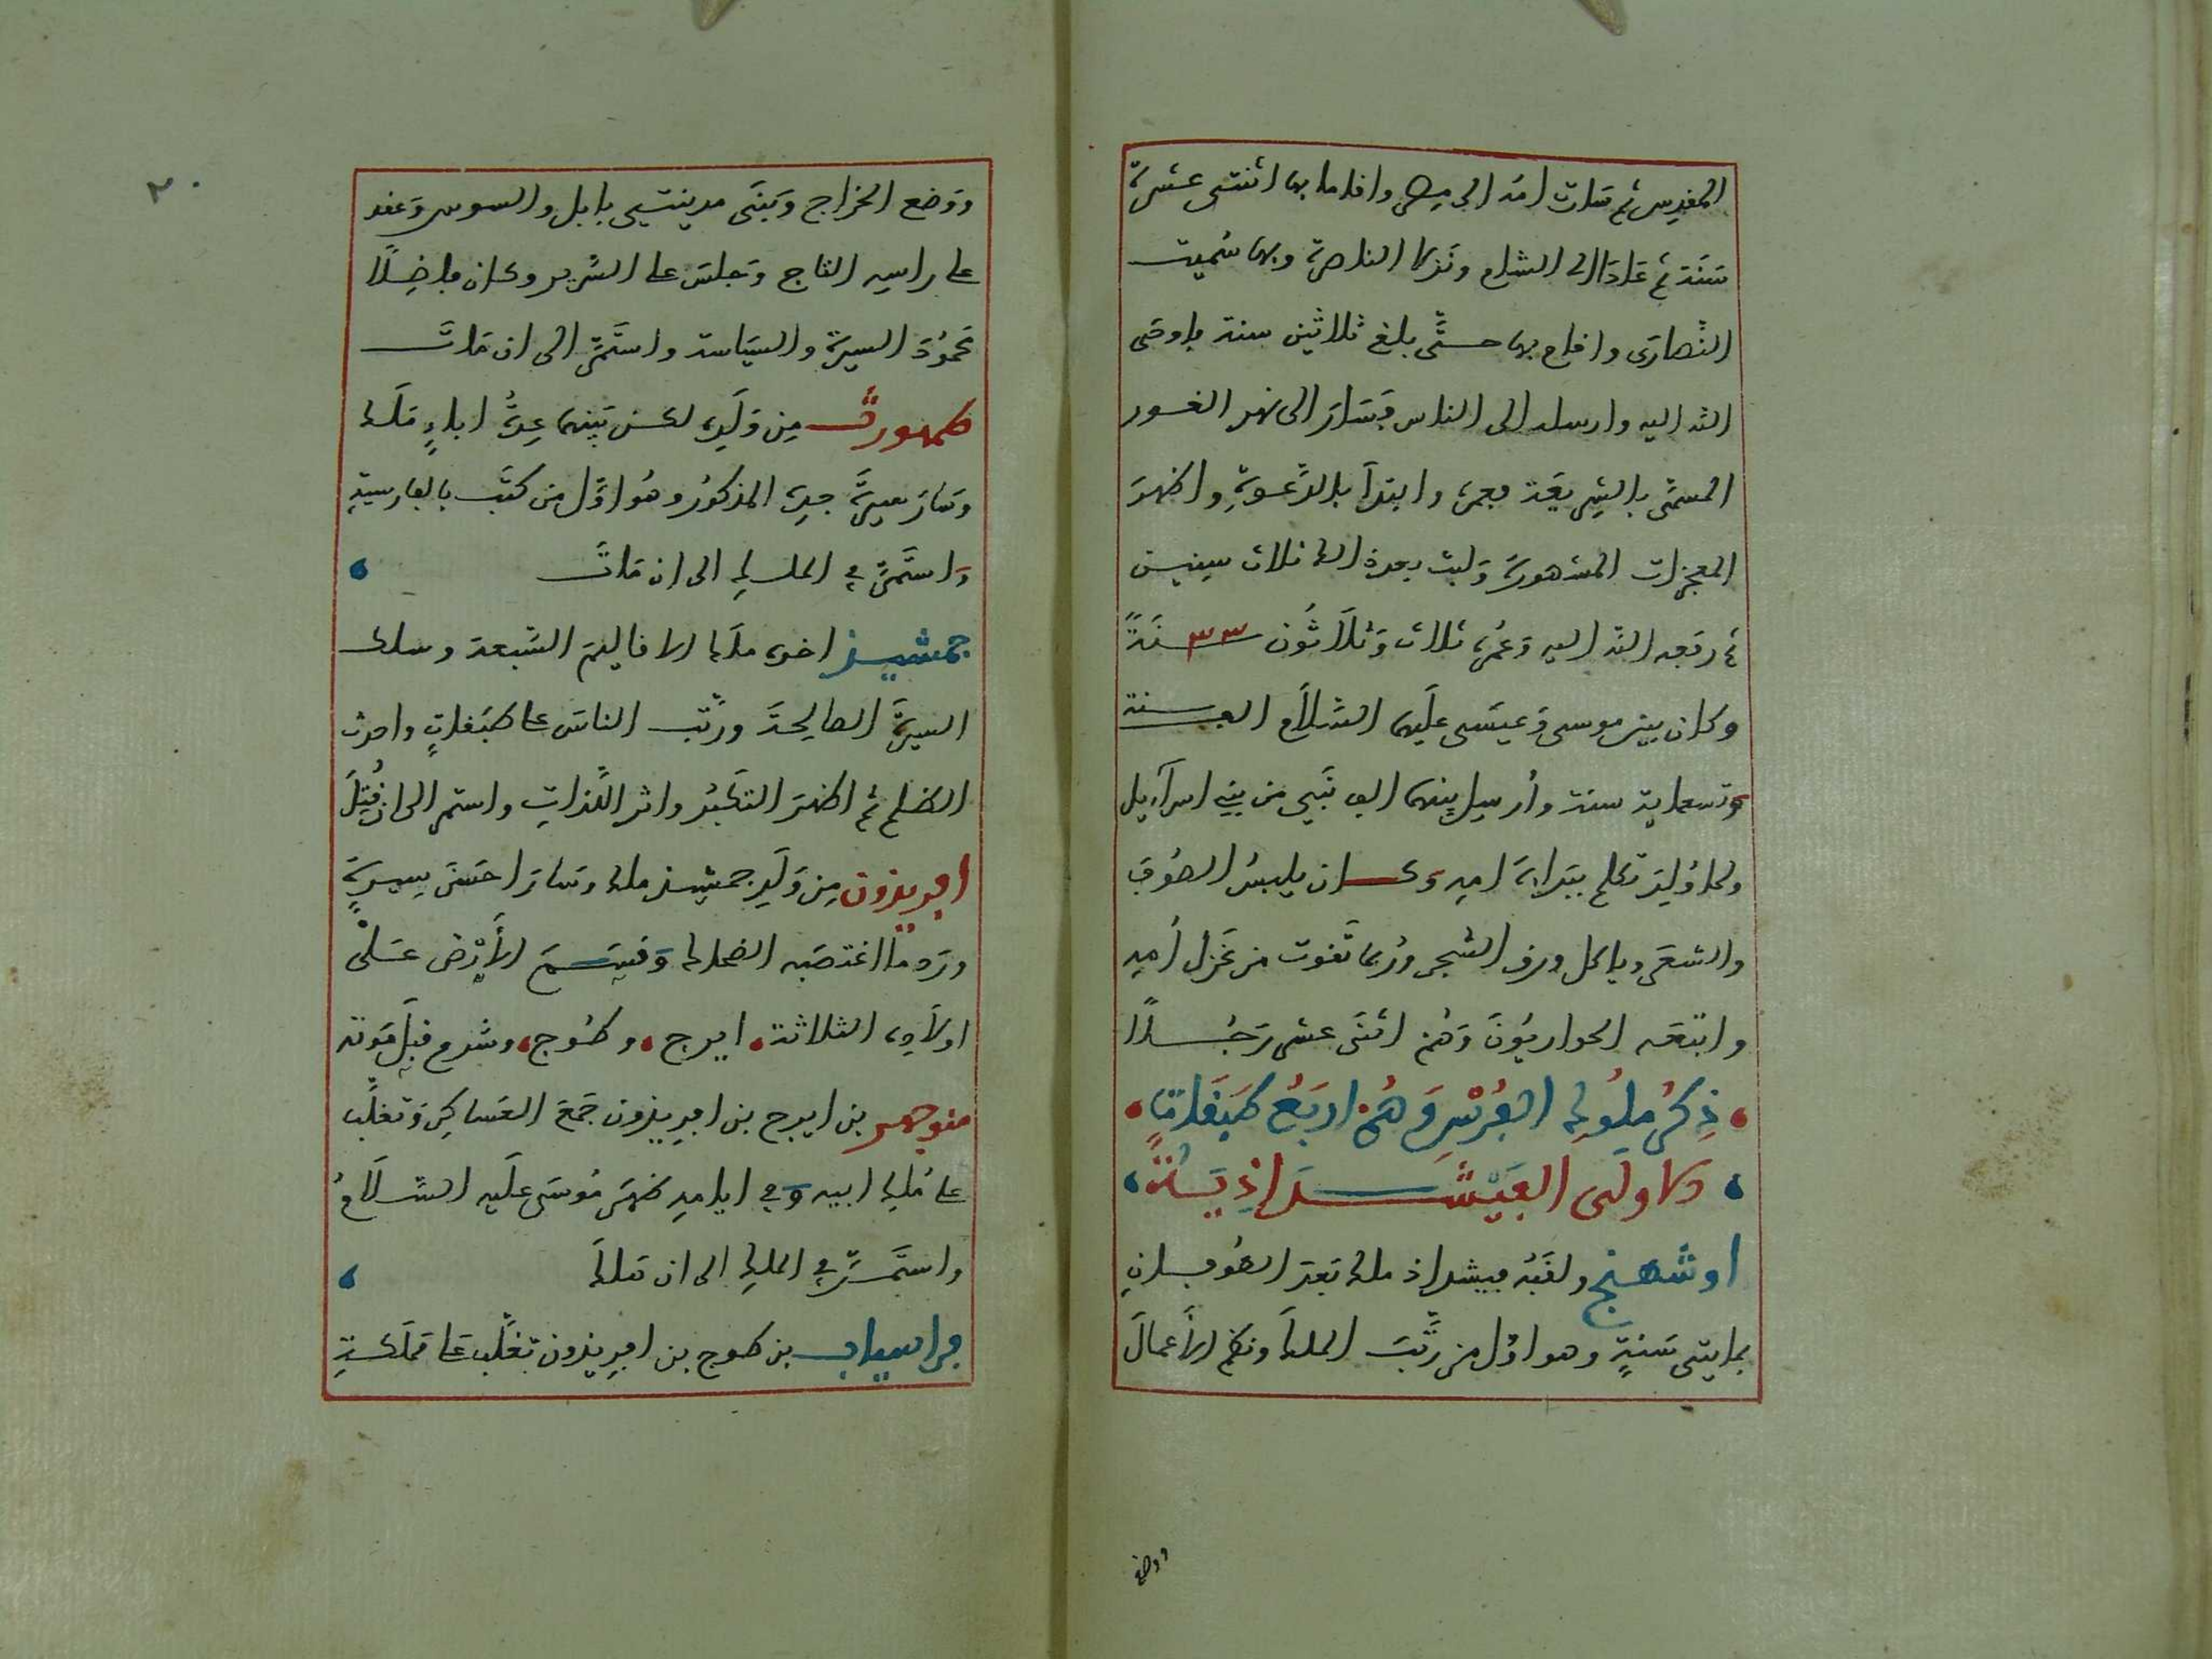 المقدس ثم سارت امه الى مصر واقاما بها اثنتى عشرة
سَنَة ثم عَادَا الى الشام ونزلا الناصرة وبها سُميت
النَّصارَى واقام بها حتَّى بلغ ثلاثين سنة فاوحَى
الله اليه وارسله الى الناس فَسَارَ الى نهر الغور
المسمَّى بالشريعَة فعمر وابتدَأ بالدَّعوةِ واظهرَ
المعجزات المشهورة وَلبث بعد ذالك ثلاث سنين
ثم رفعه الله اليه وَعُمره ثلاث وَثلَاثُون ٣٣ سنَةً
وكان بين موسى وَعيسَى عليهما السَّلَام الف سنة
وتسعماية سنة وأُرسِل بينهما الف نَبي من بني اسرآءيل
ولما وُلِدَ تكلم ببَراءة امه وكان يلبسُ الصُوفَ
والشعَر وياكل ورق الشجر ورُبما تَقوت من غَزل أُمه
واتبَعَه الحواريُونَ وَهُم اثنَى عشر رَجُلًا
ذِكرُ ملُوك الفُرْسِ وَهُم اربَعُ طبَقَاتٍ
الاولَى الفَيْشَدَاذِيَةُ
اوشهنج ولقَبُه فيشداذ ملك بَعد الطُوفانِ
بمايتى سَنةٍ وهو اوّل من رَتَّبَ الملك ونظم الأَعمالَ
ووضع
٢٠
ووَضع الخراج وَبنَى مدينتي بابل والسوس وَعقد
على راسِه التاج وَجلسَ على السَّرير وكان فاضِلًا
محمُودَ السيرة والسيَاسة واستَمَرَّ الى ان مَاتَ
طمهورث مِن وَلَدِه لكن بَينهما عِدَّةُ اباءٍ مَلَك
وسَارَ بسيرَةِ جدِه المذكُور وهُو اوَّل من كتَب بالفارسيةِ
وَاستَمَرَّ في الملك الى ان مَاتَ
جمشيذ اخوه ملَك الاقاليم السَّبعة وسلك
السيرَةَ الصالحَة ورتَّب الناسَ على طبَقاتٍ واحدث
الظلم ثم اظهرَ التكَبُر واثر اللَّذاتِ واستمر الى ان قُتِلَ
افريذون مِن وَلَدِ جمشيذ ملك وسَارَ احسَنَ سِيرَةٍ
ورَد ما اغتصَبه الضحاك وَقسَمَ الأَرْض عَلَى
اولَادِه الثلاثة ايرج وطُوج وشرم قبلَ مَوته
منوجهر بن ايرج بن افريذون جَمعَ العَسَاكِر وَتغلَّب
على مُلك ابيه وَفي ايامِه ظهَر مُوسَى علَيه السَّلَامُ
واستَمَرَّ في الملك الى ان هَلكَ
فراسياب بن طوج بن افريذون تغلَّب عَلى مَملكَةِ